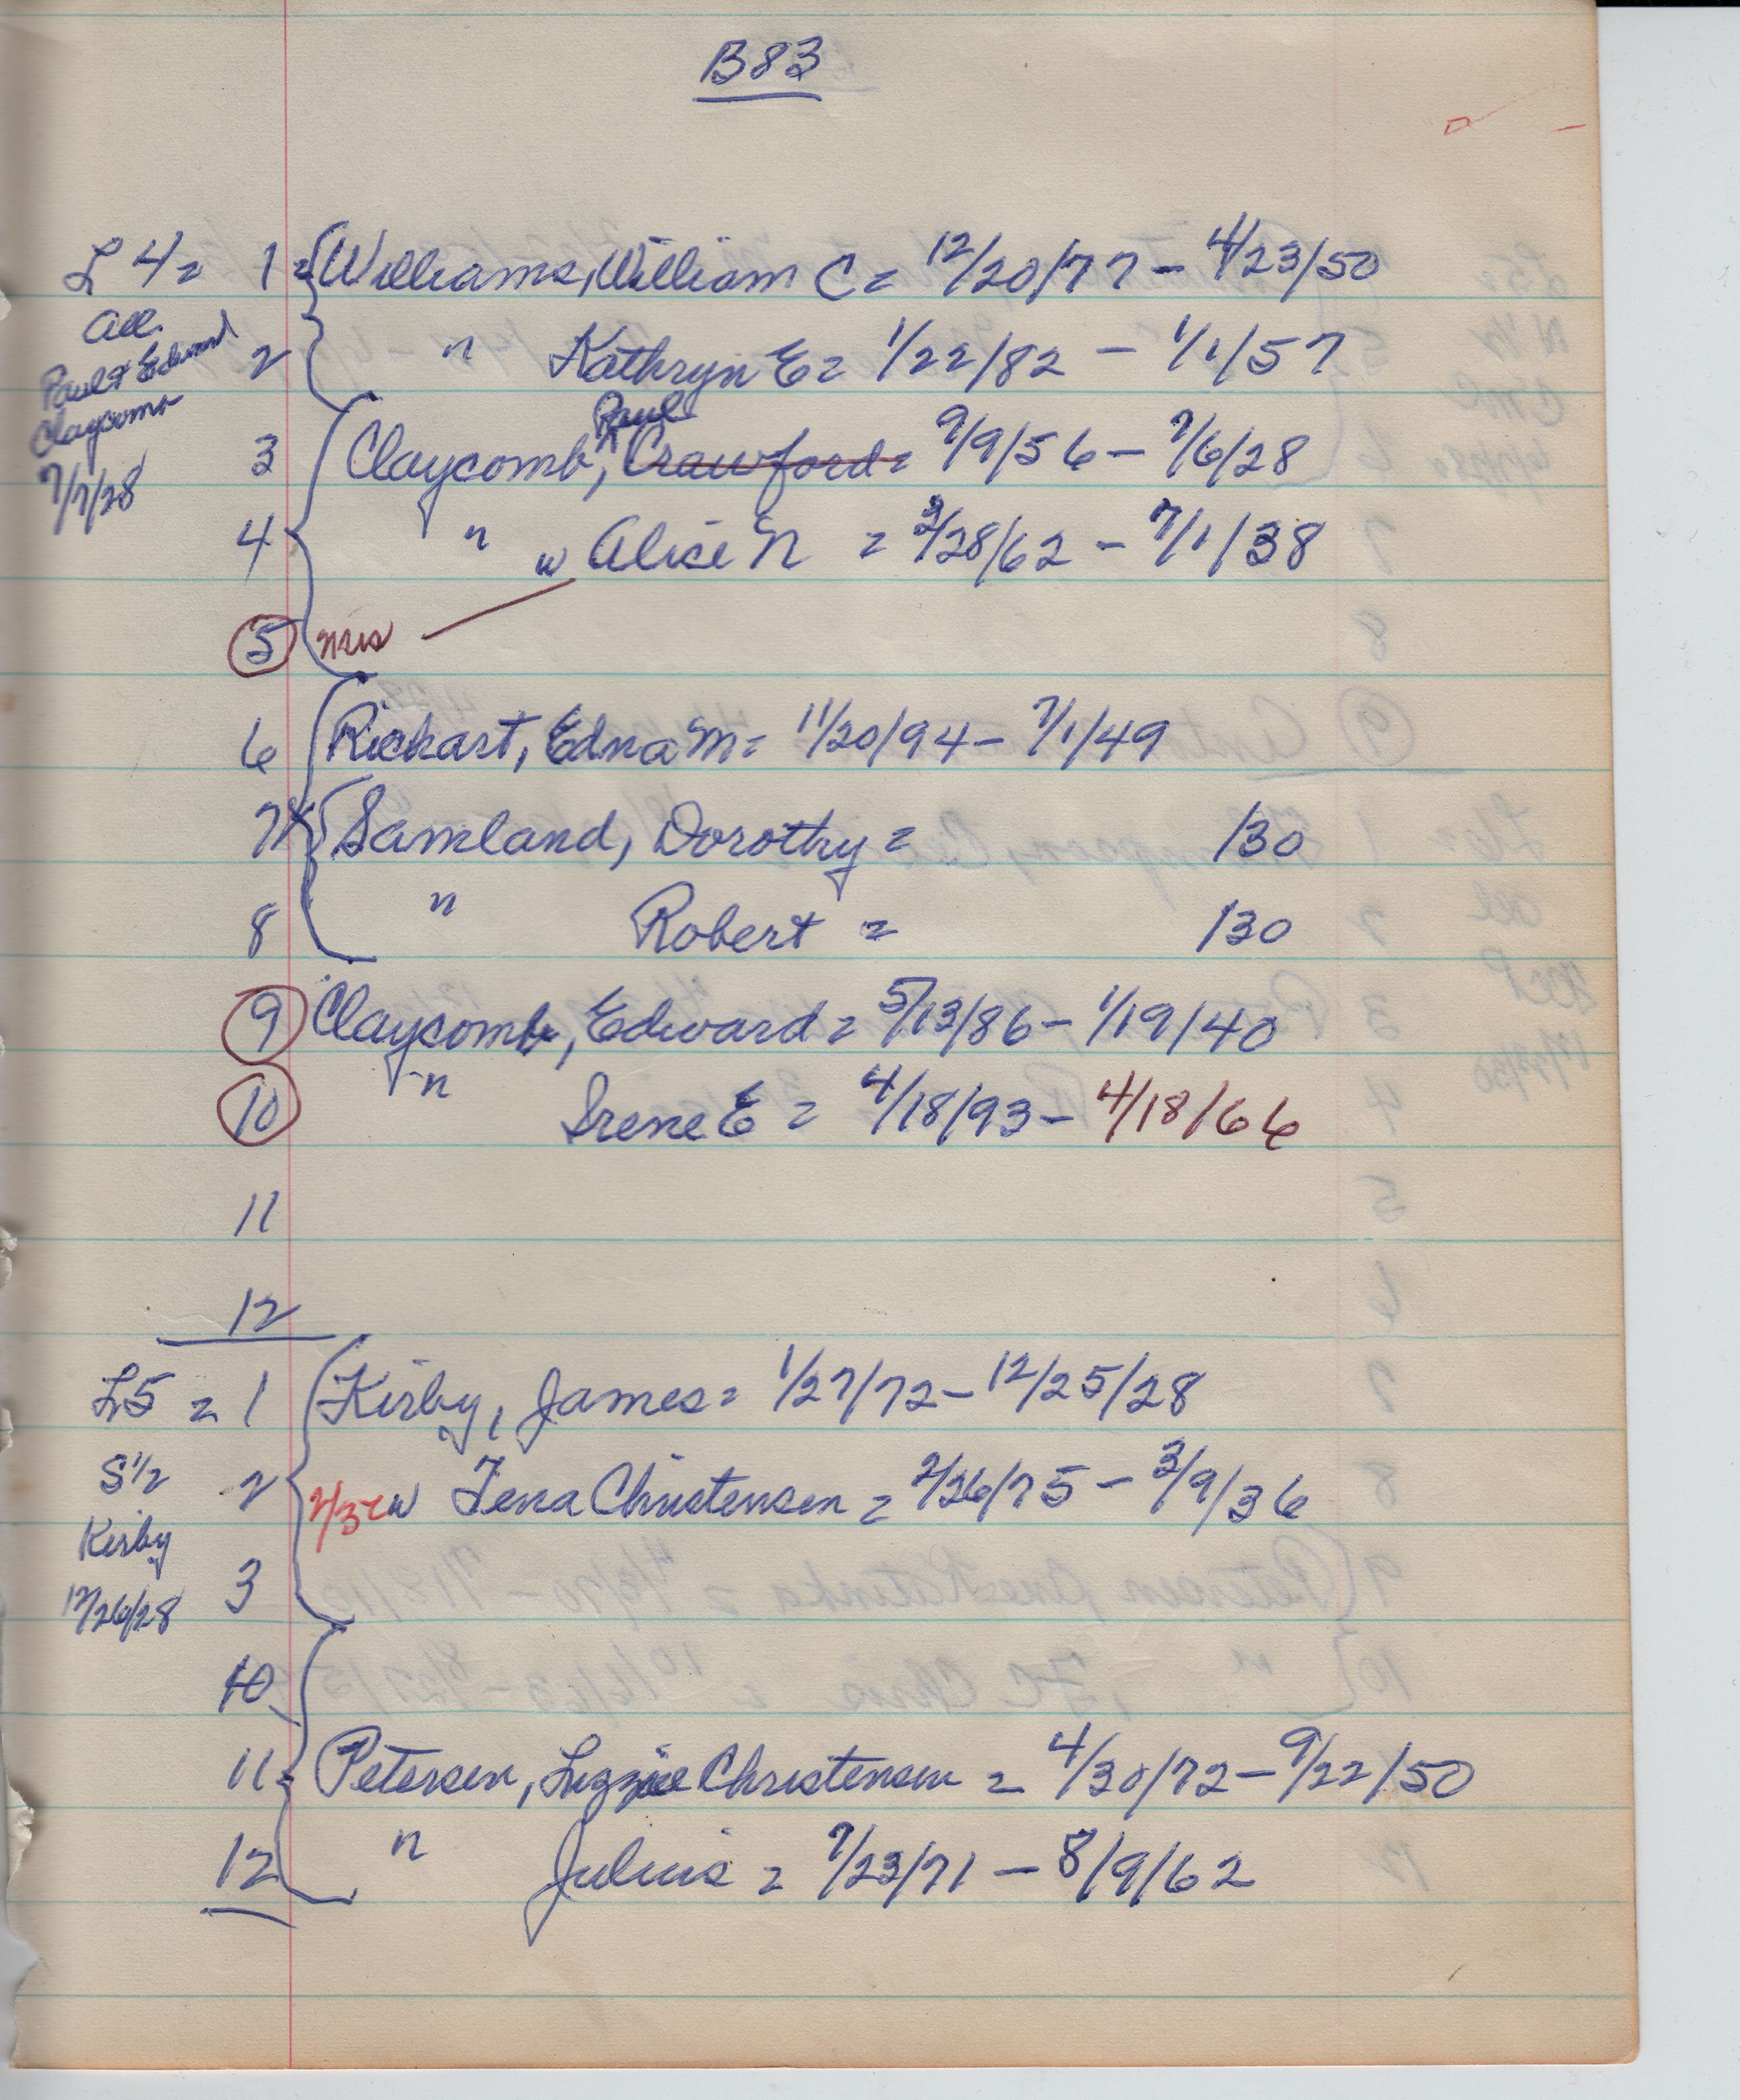 B83
L 4 = 1 = Williams, William C = 12/20/77 - 4/23/50
All
2 " Kathryn E = 1/22/82 - 1/1/57
Paul & Edward
Claycomb
Paul
3 Claycomb, Crawford = 9/9/56 - 7/6/28
7/7/28
4 " w Alice N = 3/28/62 - 7/1/38
5
6 Richart, Edna M = 11/20/94 - 7/1/49
7 Samland, Dorothy = 130
8 " Robert = 130
9 Claycomb, Edward = 5/13/86 - 1/19/40
10 " Irene E = 4/18/93 - 4/18/66
11
12
L5 = 1 Kirby, James = 1/27/72 - 12/25/28
S 1/2
2 w Tena Christensen = 2/26/75 - 3/9/36
Kirby
3
12/26/28
10
11 Petersen, Lizzie Christensen = 4/30/72 - 9/22/50
12 " Julius = 7/23/71 - 8/9/62